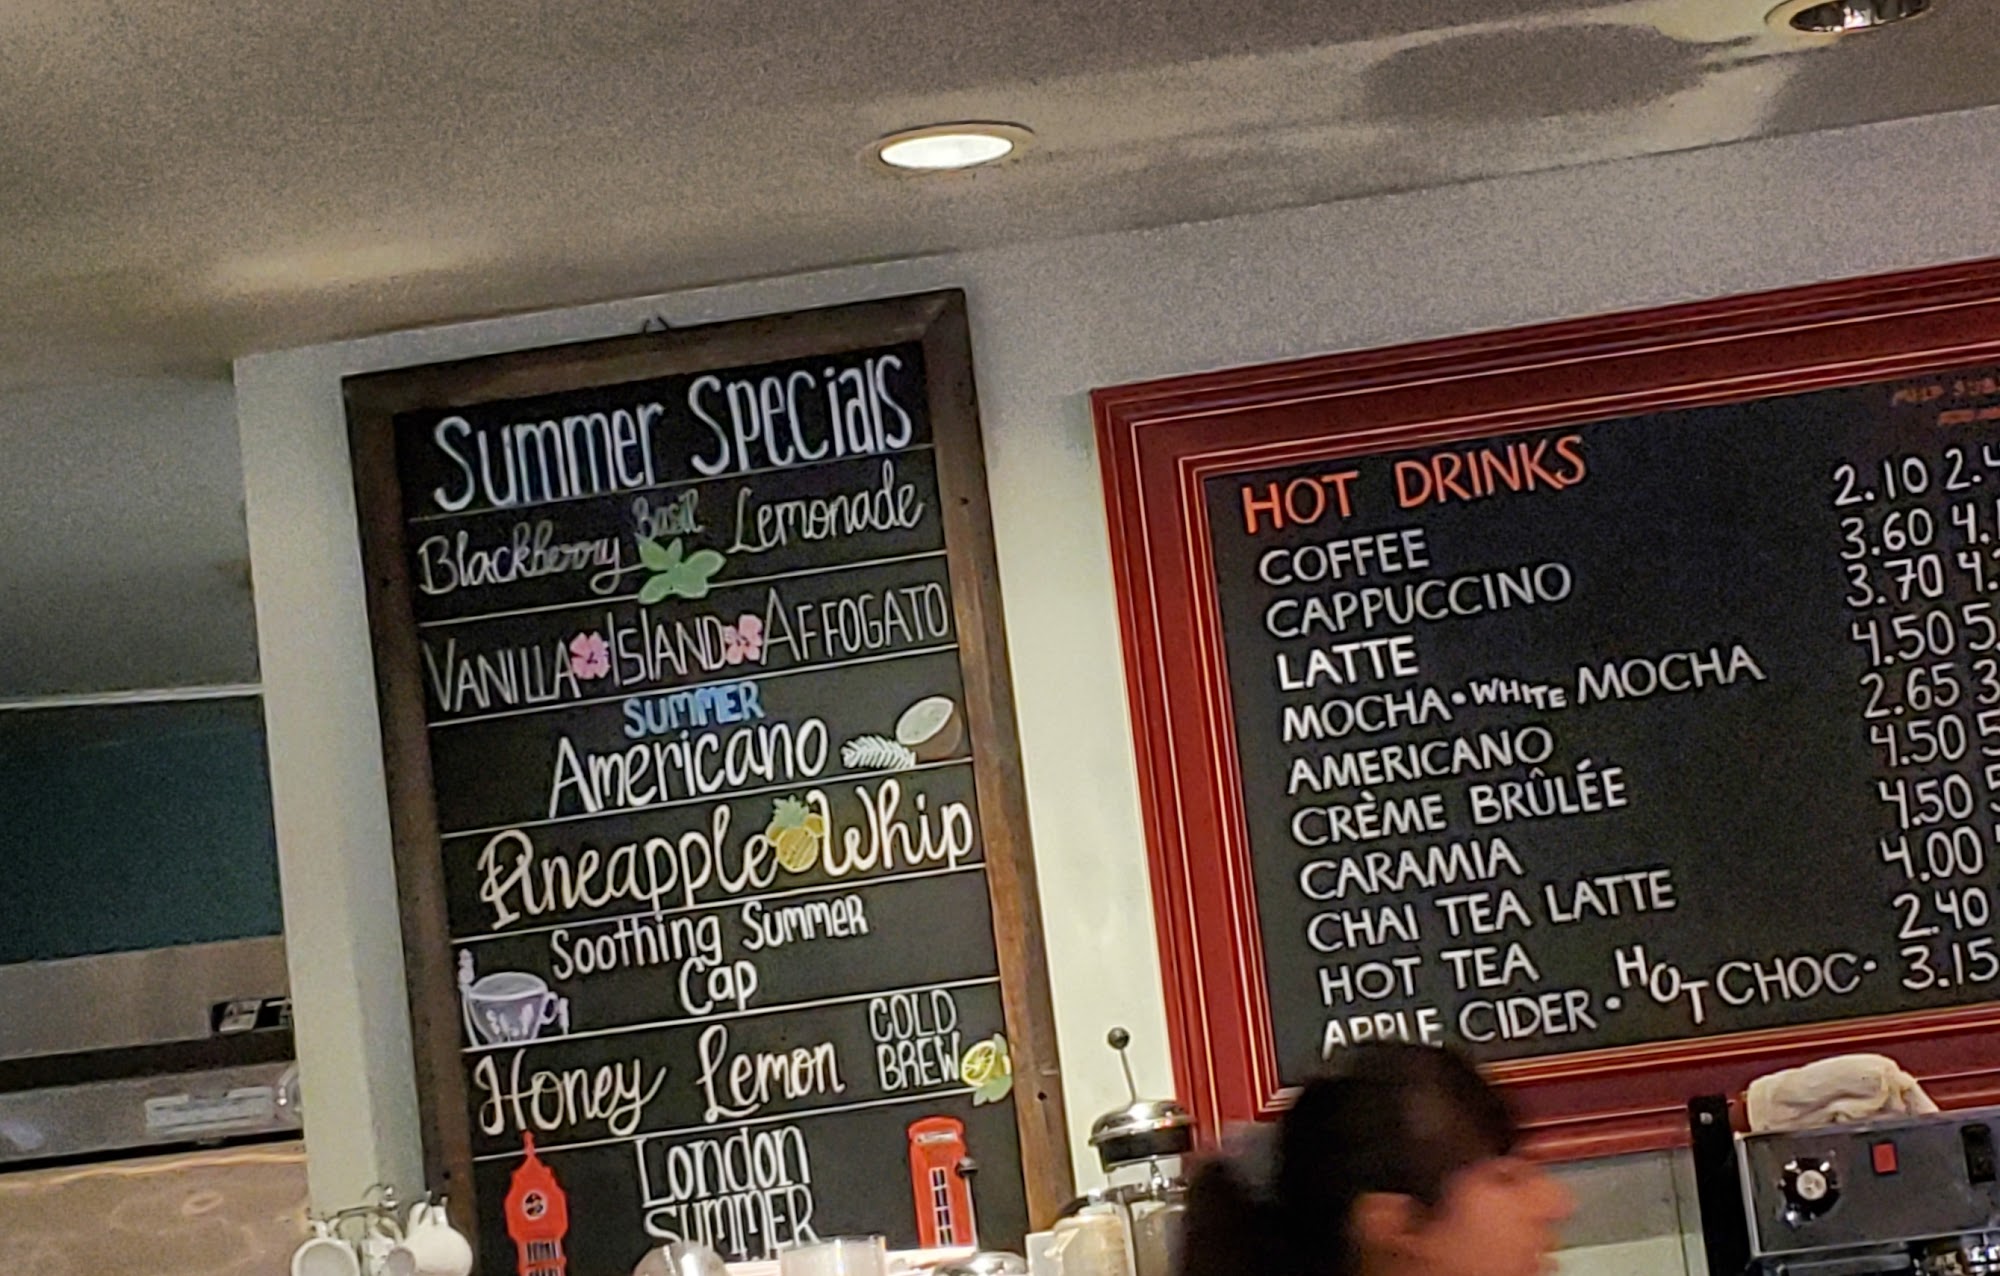 Summer Specials
Blackberry Basil Lemonade
VANILLA ISLAND AFFOGATO
SUMMER
Americano
Pineapple Whip
Soothing Summer
Cap
Honey Lemon COLD BREW
London
SUMMER
HOT DRINKS
COFFEE 2.10 2.4
CAPPUCCINO 3.60 4.
LATTE 3.70 4.
MOCHA • WHITE MOCHA 4.50 5.
AMERICANO 2.65 3
CRÈME BRÛLÉE 4.50 5
CARAMIA 4.50 5
CHAI TEA LATTE 4.00
HOT TEA 2.40
APPLE CIDER • HOT CHOC • 3.15